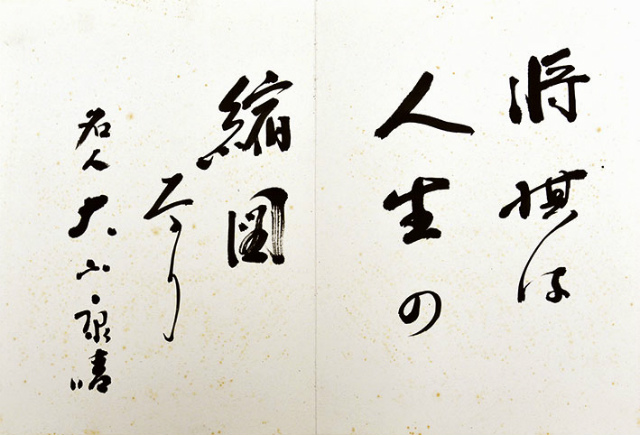 将棋は
人生の
縮図
なり
名人 大山康晴